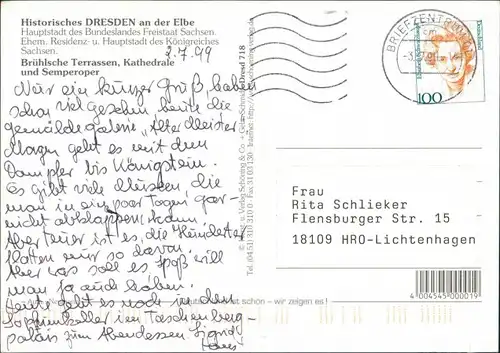 Historisches DRESDEN an der Elbe
Hauptstadt des Bundeslandes Freistaat Sachsen.
Ehem. Residenz- u. Hauptstadt des Königreiches
Sachsen.
Brühlsche Terrassen, Kathedrale
und Semperoper
2.7.99
Nur ein kurzer Gruß, haben
schon viel gesehen, heute die
gemäldegalerie "Alter Meister
Morgen geht es mit dem
Dampfer bis Königstein.
Es gibt viele Museen, die
man in ein paar Tagen gar-
nicht abklappern kann
Aber teuer ist es, die Hunderter
flattern nur so davon.
Aber was soll es, Spaß will
man ja auch haben.
Heute geht es noch in den
Sophienkeller im Taschenberg-
palais zum Abendessen Sigrid
Hans
BRIEFZENTRUM
Deutschland
100
Dresd 718
Frau
Rita Schlieker
Flensburger Str. 15
18109 HRO-Lichtenhagen
ist schön – wir zeigen es!
4 004545 000019